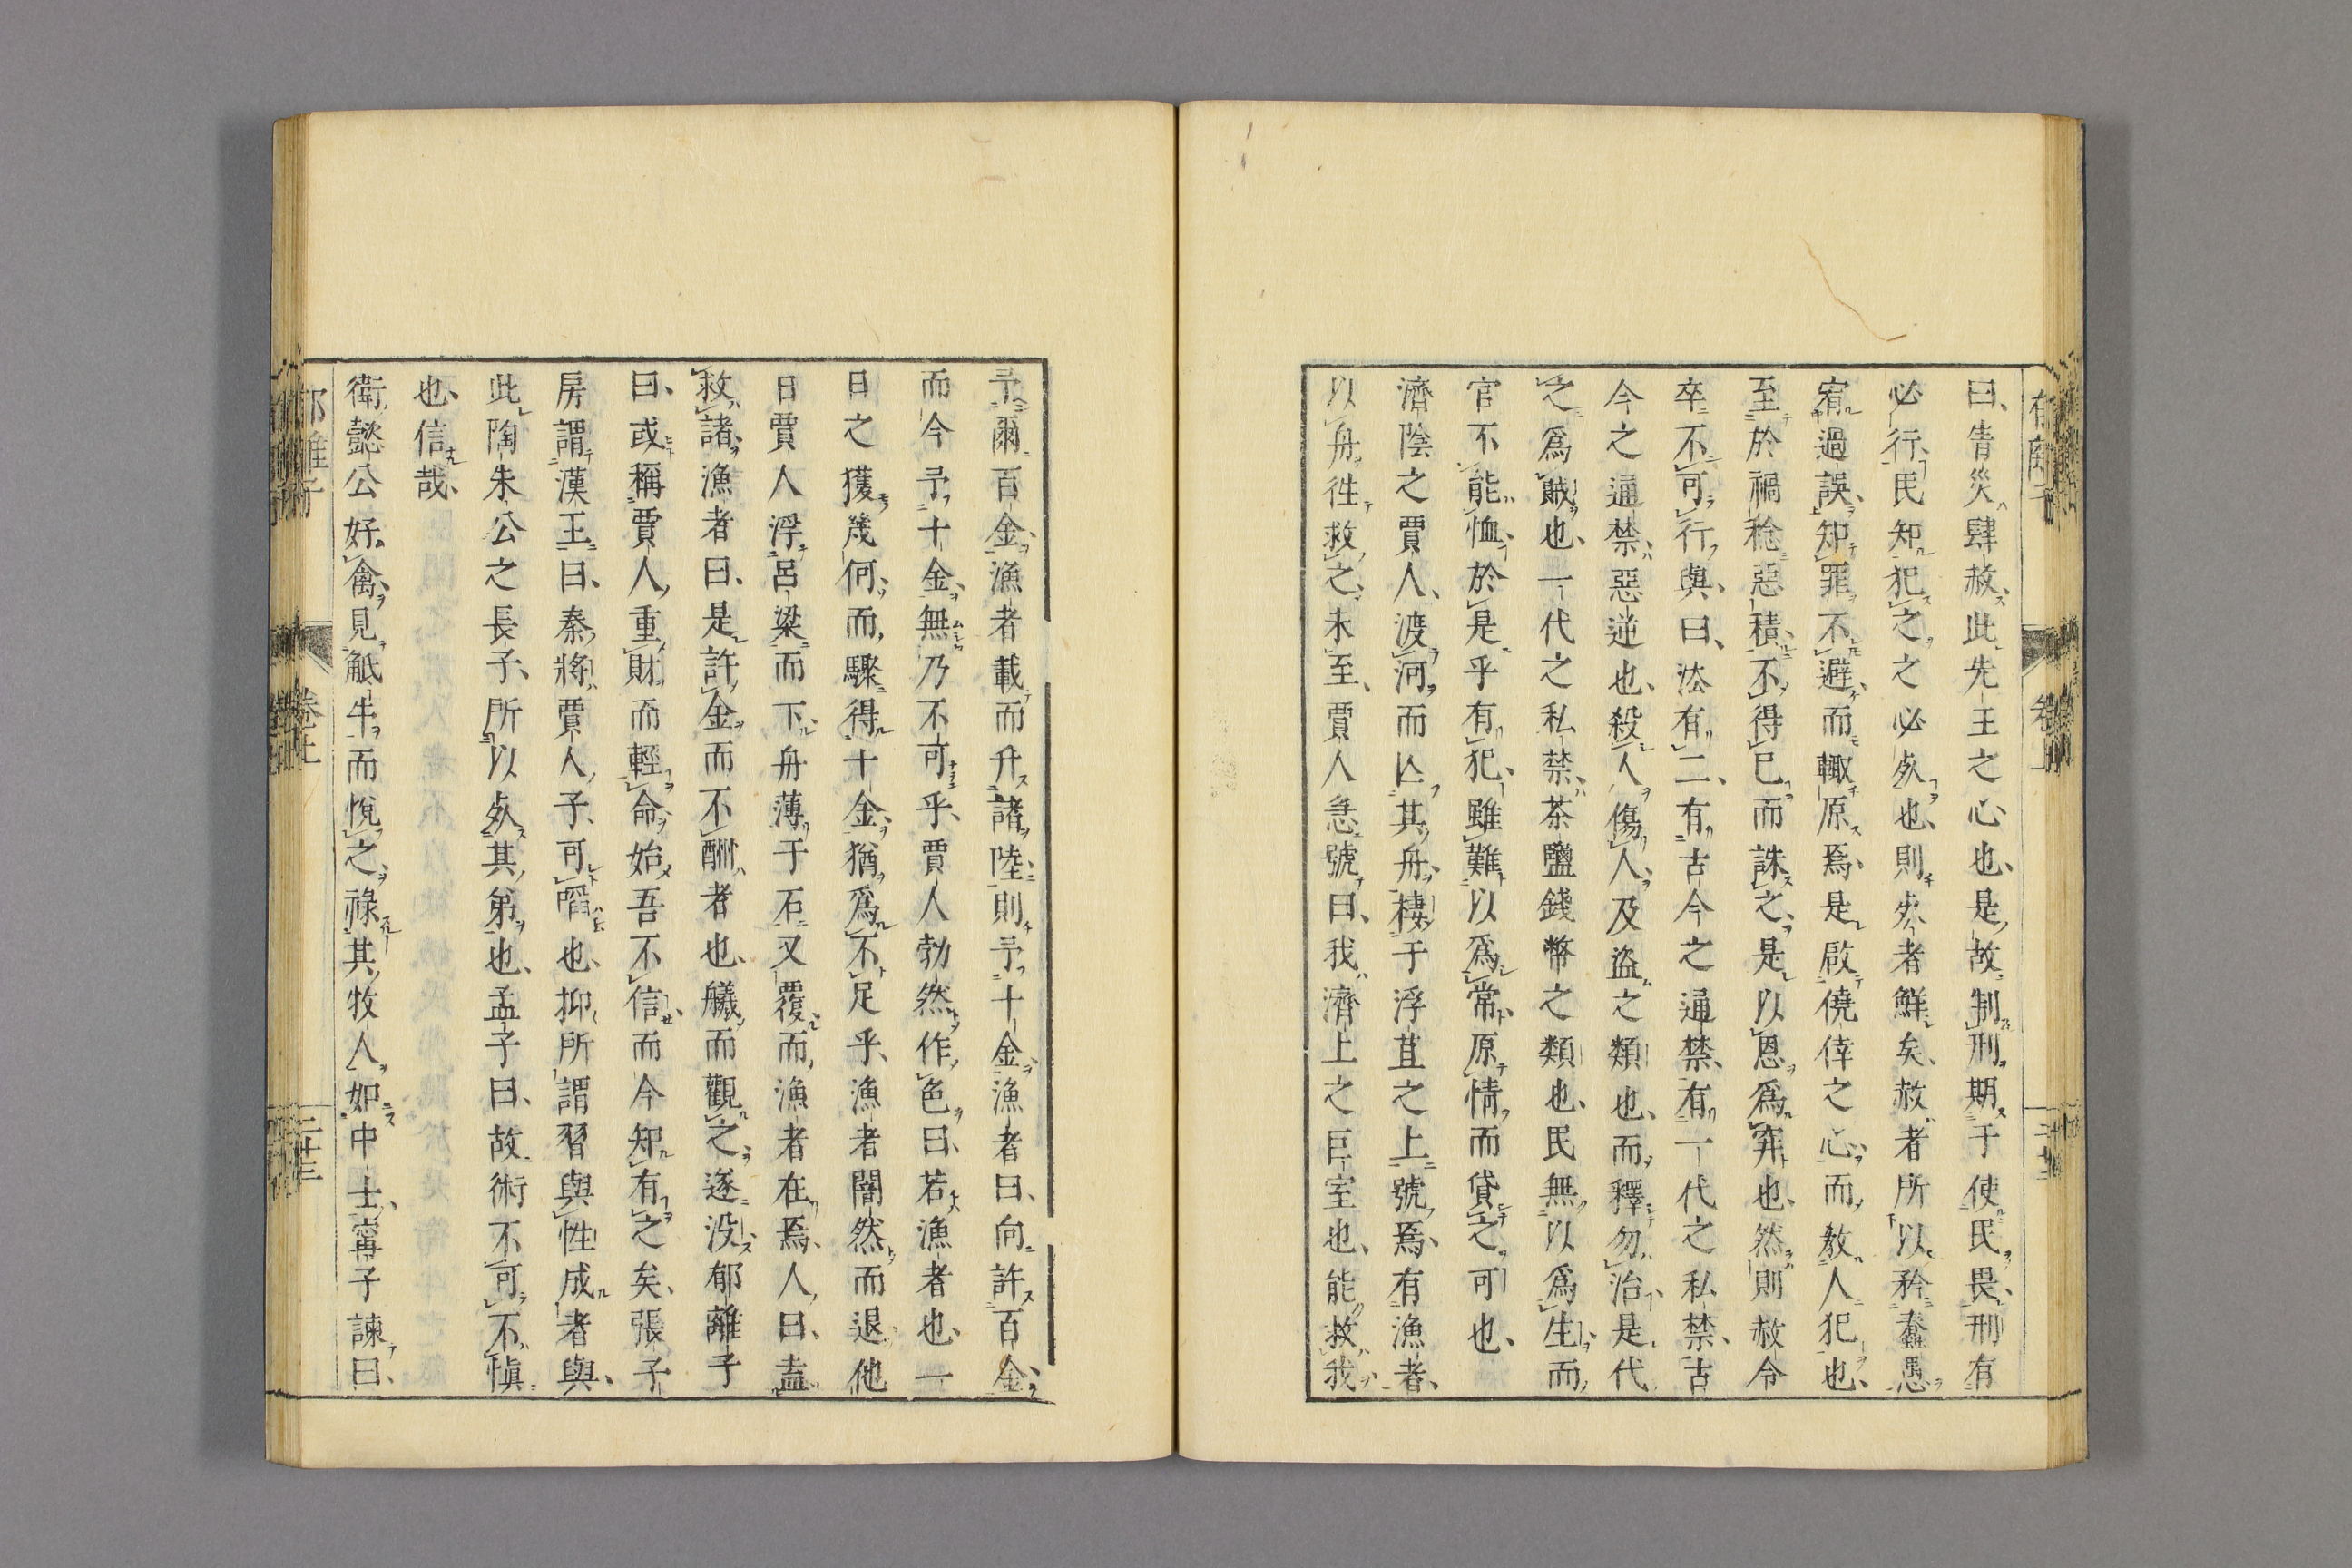 曰、眚災肆赦、此先王之心也、是故制刑期于使民畏、刑有
必行、民知犯之之必死也、則死者鮮矣、赦者所以矜蠢愚
宥過誤、知罪不避、而輙原焉、是啟僥倖之心、而教人犯也、
至於禍稔惡積、不得已而誅之、是以恩爲穽也、然則赦令
卒不可行與、曰、法有二、有古今之通禁、有一代之私禁、古
今之通禁、惡逆也、殺人傷人、及盜之類也、而釋勿治、是代
之爲賊也、一代之私禁、茶鹽錢幣之類也、民無以爲生、而
官不能恤、於是乎有犯、雖難以爲常、原情而貸之可也、
濟陰之賈人、渡河而亾其舟、棲于浮苴之上號焉、有漁者、
以舟徃救之、未至、賈人急號曰、我濟上之巨室也、能救我、
予爾百金、漁者載而升諸陸、則予十金、漁者曰、向許百金、
而今予十金、無乃不可乎、賈人勃然作色曰、若漁者也、一
日之獲幾何、而驟得十金、猶爲不足乎、漁者闇然而退、他
日賈人浮呂梁而下、舟薄于石又覆、而漁者在焉、人曰、盍
救諸、漁者曰、是許金而不酬者也、艤而觀之、遂没、郁離子
曰、或稱賈人重財而輕命、始吾不信、而今知有之矣、張子
房謂漢王曰、秦將賈人子、可㗖也、抑所謂習與性成者與、
此陶朱公之長子、所以死其第也、孟子曰、故術不可不愼
也、信哉、
衛懿公好禽、見觝牛而悅之、祿其牧人、如中士、甯子諫曰、
卷上